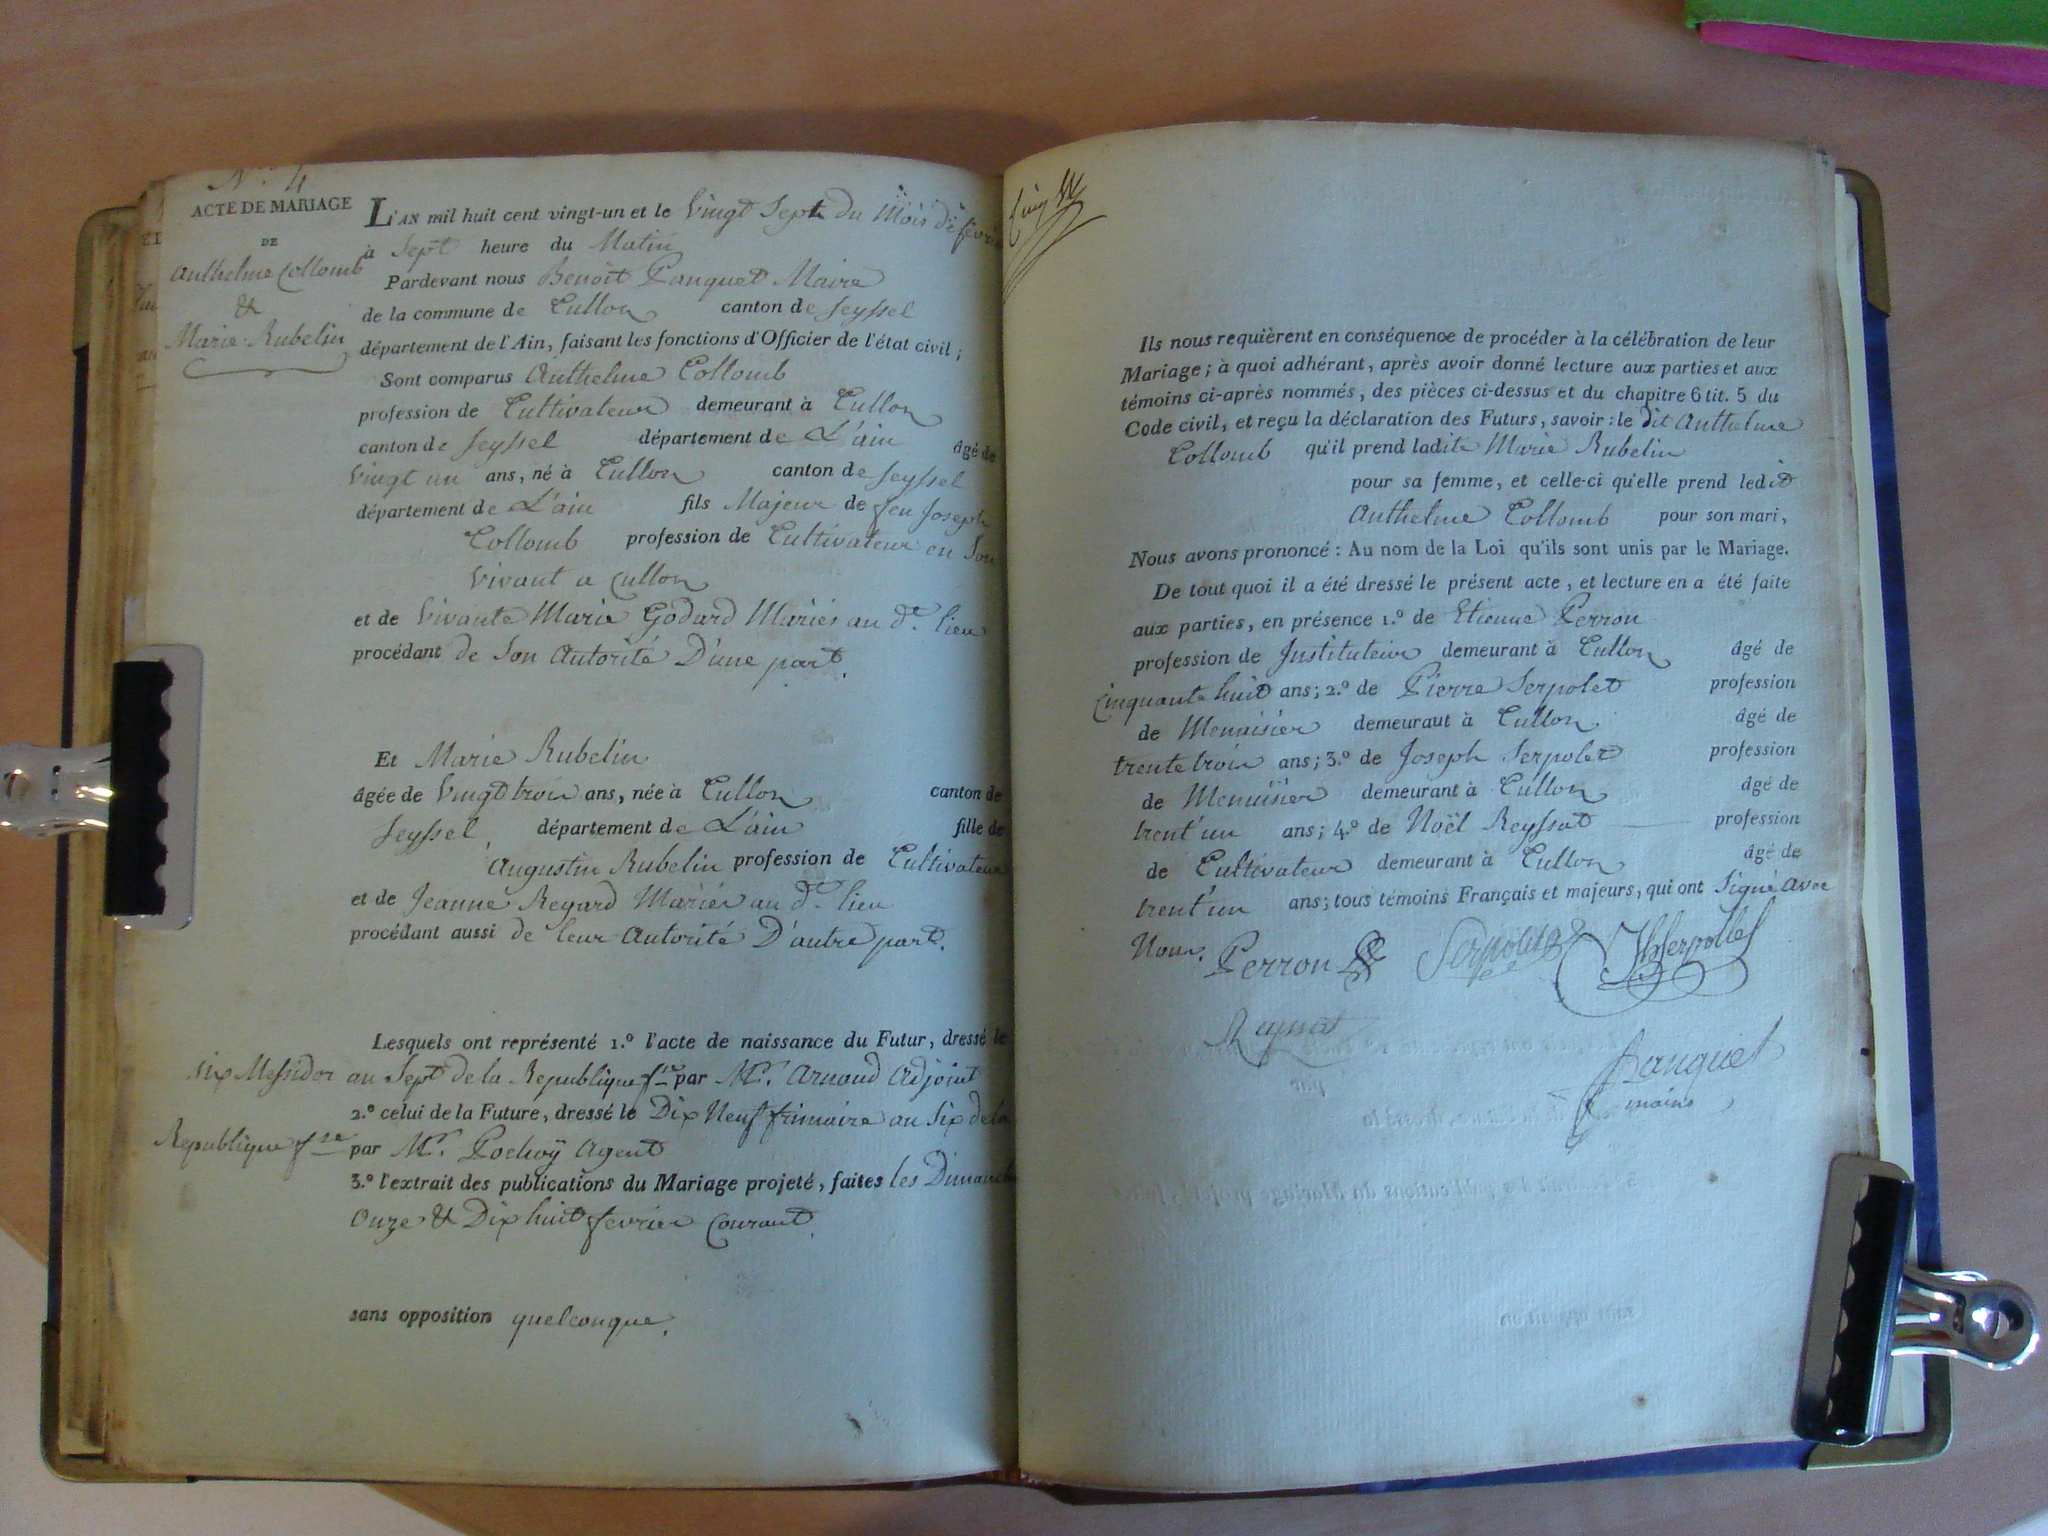 N.° 4
ACTE DE MARIAGE
DE
Anthelme Collomb
&
Marie Rubelin
L'AN mil huit cent vingt-un et le Vingt Sept du Mois de fevrier
à Sept heure du Matin
Pardevant nous Benoit Panquet Maire
de la commune de Cullon canton de Seyssel
département de l'Ain, faisant les fonctions d'Officier de l'état civil ;
Sont comparus Anthelme Collomb
profession de Cultivateur demeurant à Cullon
canton de Seyssel département de L'ain âgé de
Vingt un ans, né à Cullon canton de Seyssel
département de L'ain fils Majeur de feu Joseph
Collomb profession de Cultivateur en Son
Vivant a Cullon
et de Vivante Marie Godard Mariés au d.t lieu
procédant de Son Autorité D'une part.
Et Marie Rubelin
âgée de Vingt trois ans, née à Cullon canton de
Seyssel, département de L'ain fille de
Augustin Rubelin profession de Cultivateur
et de Jeanne Regard Mariés au d.t lieu
procédant aussi de leur Autorité D'autre part.
Lesquels ont représenté 1.° l'acte de naissance du Futur, dressé le
six Messidor an Sept de la Republique f.se par M.r Arnond Adjoint
2.° celui de la Future, dressé le Dix Neuf frimaire an Six de la
Republique f.se par M.r Pochoÿ Agent
3.° l'extrait des publications du Mariage projeté, faites les Dimanche
Onze & Dix huit fevrier Courant.
sans opposition quelconque.
Ils nous requièrent en conséquence de procéder à la célébration de leur
Mariage ; à quoi adhérant, après avoir donné lecture aux parties et aux
témoins ci-après nommés, des pièces ci-dessus et du chapitre 6 tit. 5 du
Code civil, et reçu la déclaration des Futurs, savoir : le dit Anthelme
Collomb qu'il prend ladite Marie Rubelin
pour sa femme, et celle-ci qu'elle prend ledit
Anthelme Collomb pour son mari,
Nous avons prononcé : Au nom de la Loi qu'ils sont unis par le Mariage.
De tout quoi il a été dressé le présent acte, et lecture en a été faite
aux parties, en présence 1.° de Etienne Perron
profession de Instituteur demeurant à Cullon âgé de
Cinquante huit ans ; 2.° de Pierre Serpolet profession
de Menuisier demeuraut à Cullon âgé de
trente trois ans ; 3.° de Joseph Serpolet profession
de Menuisier demeurant à Cullon âgé de
trent'un ans ; 4.° de Noël Reyssat profession
de Cultivateur demeurant à Cullon âgé de
trent'un ans ; tous témoins Français et majeurs, qui ont Signé Avec
Nous. Perron Serpolet Jh Serpollet
Reyssat
Panquet
maire